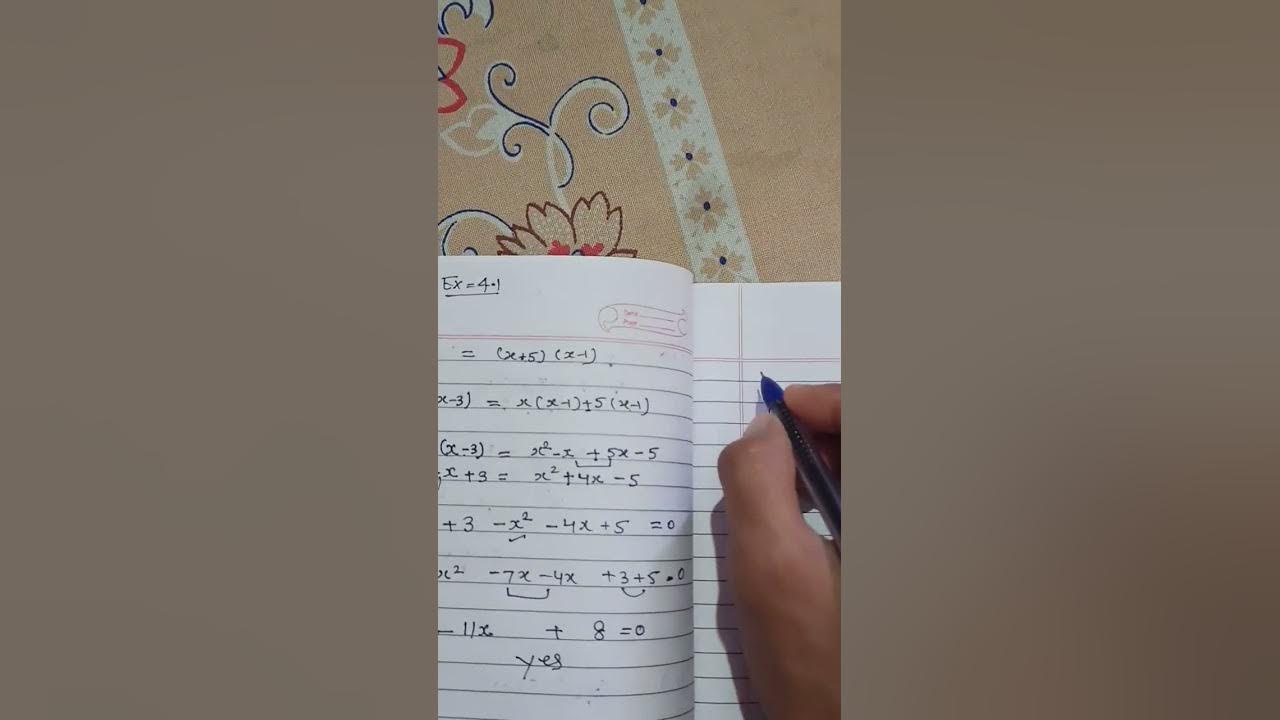 Ex = 4.1
= (x+5) (x-1)
x-3) = x(x-1)+5(x-1)
(x-3) = x²-x +5x-5
x+3 = x²+4x-5
+3 -x² -4x+5 =0
x² -7x-4x +3+5.0
-11x + 8 =0
yes